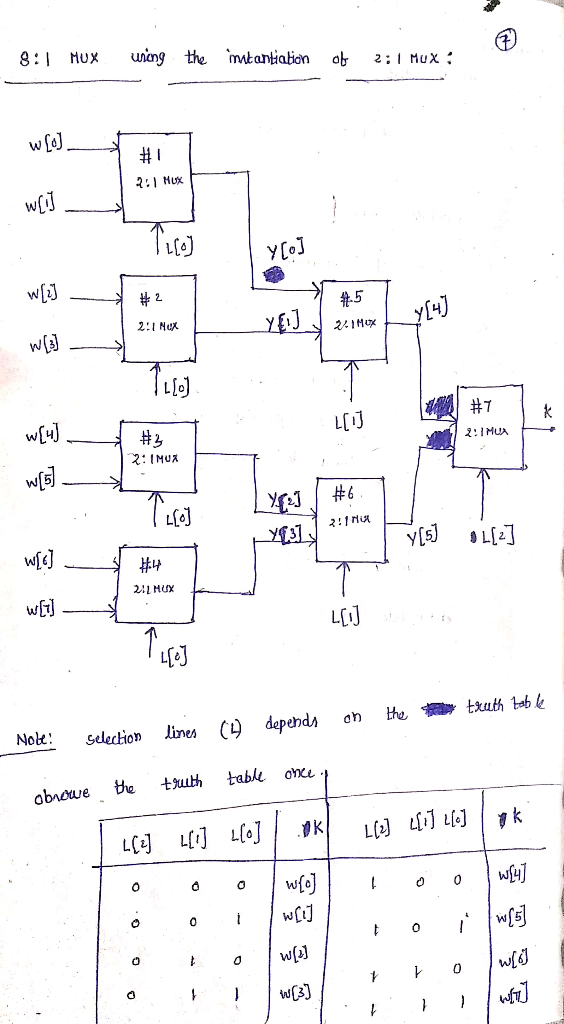 7
8:1 MUX using the instantiation of 2:1 MUX :
w[0]
#1
2:1 MUX
w[1]
L[0]
y[0]
w[2]
#2
2:1 MUX
w[3]
L[0]
y[1]
#5
2:1 MUX
y[4]
L[1]
#7
2:1 MUX
k
w[4]
#3
2:1 MUX
w[5]
L[0]
y[2]
#6
2:1 MUX
y[3]
y[5]
L[2]
w[6]
#4
2:1 MUX
w[7]
L[0]
L[1]
Note: selection lines (L) depends on the truth table
observe the truth table once.
L[2] L[1] L[0] K L[2] L[1] L[0] k
0 0 0 w[0] 1 0 0 w[4]
0 0 1 w[1] 1 0 1 w[5]
0 1 0 w[2] 1 1 0 w[6]
0 1 1 w[3] 1 1 1 w[7]